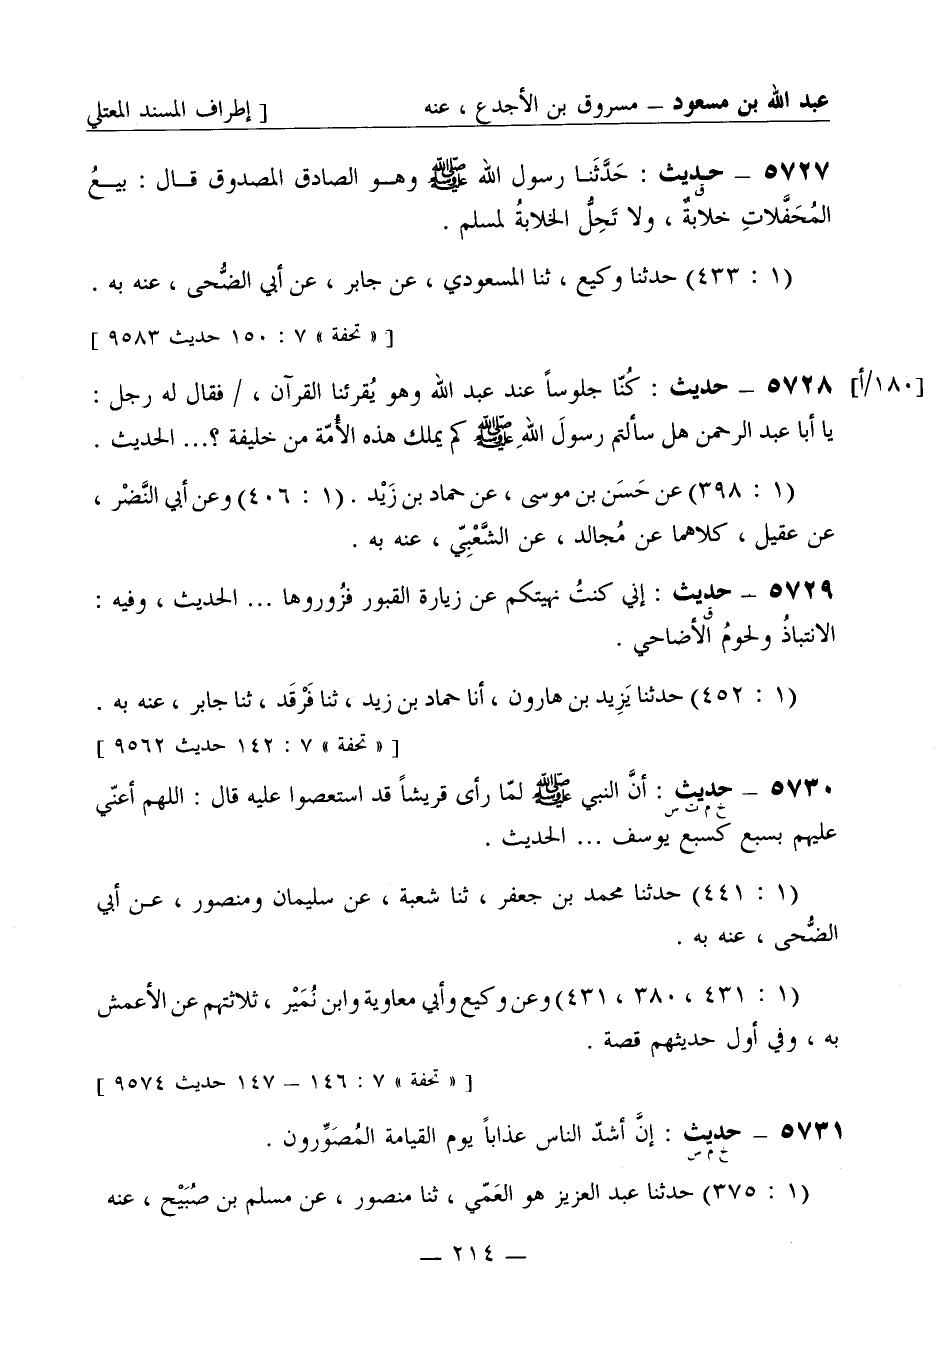 عبد الله بن مسعود – مسروق بن الأجدع ، عنه [ إطراف المسند المعتلي
٥٧٢٧ – حديث : حَدَّثَنا رسول الله ﷺ وهو الصادق المصدوق قال : بيعُ
ق
المُحَفَّلاتِ خلابةٌ ، ولا تَحِلُّ الخلابةُ لمسلم .
(١ : ٤٣٣) حدثنا وكيع ، ثنا المسعودي ، عن جابر ، عن أبي الضُّحى ، عنه به .
[ « تحفة » ٧ : ١٥٠ حديث ٩٥٨٣ ]
[١٨٠/أ] ٥٧٢٨ – حديث : كُنّا جلوساً عند عبد الله وهو يُقرئنا القرآن ، / فقال له رجل :
يا أبا عبد الرحمن هل سألتم رسولَ اللهِ ﷺ كم يملك هذه الأُمّة من خليفة ؟... الحديث .
(١ : ٣٩٨) عن حَسَن بن موسى ، عن حماد بن زَيْد . (١ : ٤٠٦) وعن أبي النَّضْر ،
عن عقيل ، كلاهما عن مُجالد ، عن الشَّعْبِيّ ، عنه به .
٥٧٢٩ – حديث : إني كنتُ نهيتكم عن زيارة القبور فزُوروها ... الحديث ، وفيه :
ق
الانتباذُ ولحومُ الأضاحي .
(١ : ٤٥٢) حدثنا يَزِيد بن هارون ، أنا حماد بن زيد ، ثنا فَرْقَد ، ثنا جابر ، عنه به .
[ « تحفة » ٧ : ١٤٢ حديث ٩٥٦٢ ]
٥٧٣٠ – حديث : أنَّ النبي ﷺ لمّا رأى قريشاً قد استعصوا عليه قال : اللهم أعنّي
خ م ت س
عليهم بسبع كسبع يوسف ... الحديث .
(١ : ٤٤١) حدثنا محمد بن جعفر ، ثنا شعبة ، عن سليمان ومنصور ، عن أبي
الضُّحى ، عنه به .
(١ : ٤٣١ ، ٣٨٠ ، ٤٣١) وعن وكيع وأبي معاوية وابن نُمَيْر ، ثلاثتهم عن الأعمش
به ، وفي أول حديثهم قصة .
[ « تحفة » ٧ : ١٤٦ – ١٤٧ حديث ٩٥٧٤ ]
٥٧٣١ – حديث : إنَّ أشدّ الناس عذاباً يوم القيامة المُصَوِّرون .
خ م س
(١ : ٣٧٥) حدثنا عبد العزيز هو العَمّي ، ثنا منصور ، عن مسلم بن صُبَيْح ، عنه
– ٢١٤ –